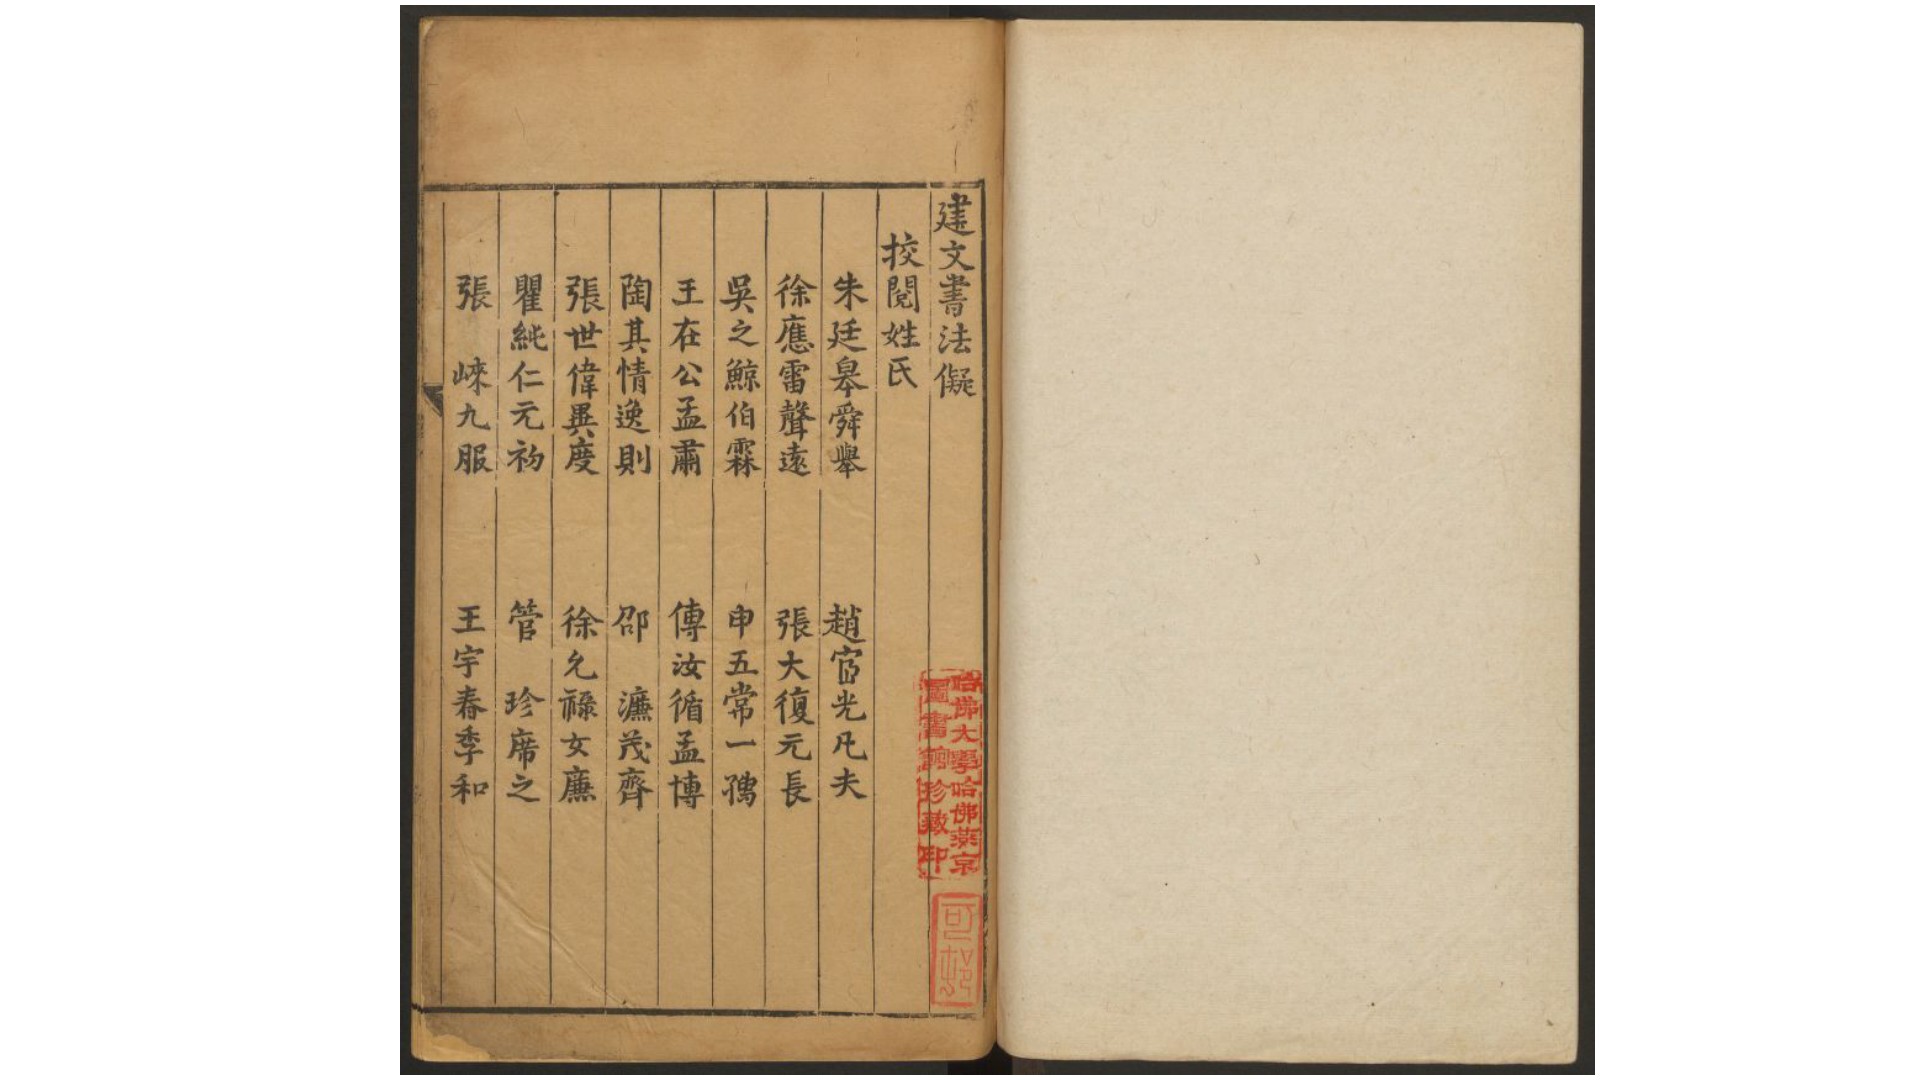 建文書法儗
挍閱姓氏
朱廷皋舜舉
趙宧光凡夫
徐應雷聲遠
張大復元長
吳之鯨伯霖
申五常一孺
王在公孟肅
傅汝循孟博
陶其情逸則
邵濂茂齊
張世偉異度
徐允祿女廉
瞿純仁元初
管珍席之
張崍九服
王宇春季和
哈佛大學哈佛燕京
圖書館珍藏印